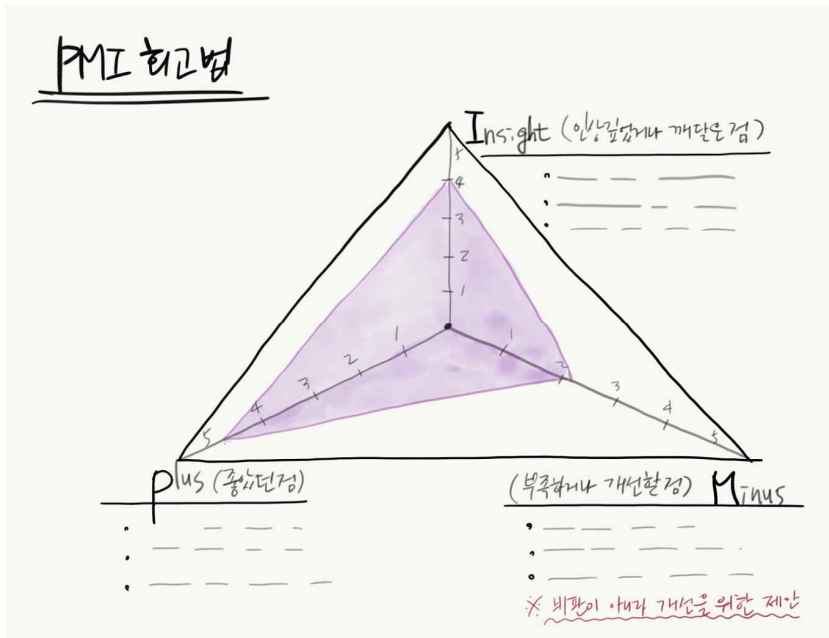 PMI 회고법
Insight (인상깊었거나 깨달은 점)
5
4
3
2
1
1
2
3
4
5
1
2
3
4
5
Plus (좋았던점)
(부족하거나 개선할 점) Minus
※ 비판이 아니라 개선을 위한 제안